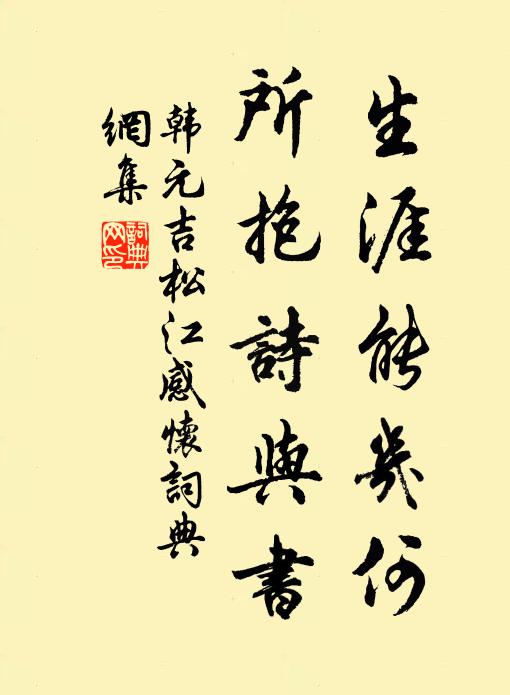 生涯能幾何
所抱詩與書
韩元吉松江感懷詞典
網集
詞典
网印